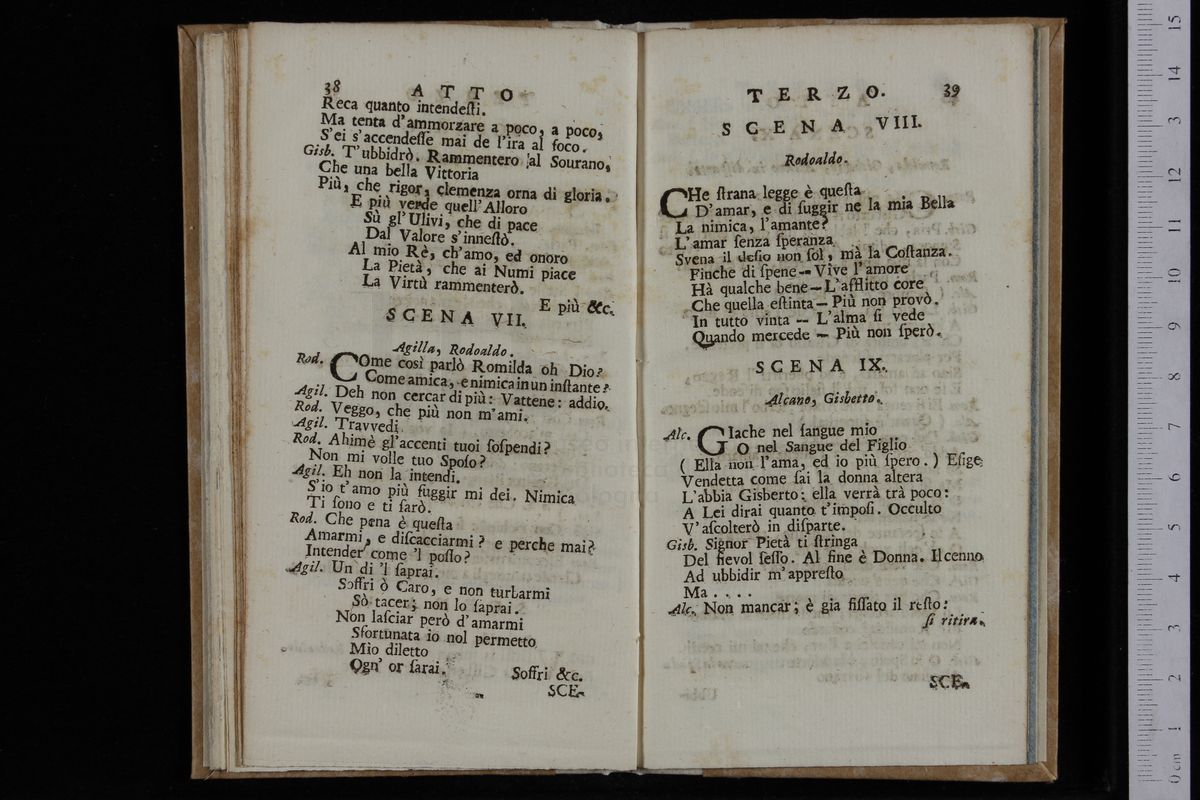 38 ATTO
Reca quanto intendeſti.
Ma tenta d'ammorzare a poco, a poco,
S'ei s'accendeſſe mai de l'ira al foco.
Gisb. T'ubbidrò. Rammentero al Sourano,
Che una bella Vittoria
Più, che rigor, clemenza orna di gloria.
E più verde quell'Alloro
Sù gl'Ulivi, che di pace
Dal Valore s'inneſtò.
Al mio Rè, ch'amo, ed onoro
La Pietà, che ai Numi piace
La Virtù rammenterò.
E più &c.
SCENA VII.
Agilla, Rodoaldo.
Rod. COme così parlò Romilda oh Dio?
Come amica, e nimica in un inſtante?
Agil. Deh non cercar di più: Vattene: addio.
Rod. Veggo, che più non m'ami.
Agil. Travvedi.
Rod. Ahimè gl'accenti tuoi ſoſpendi?
Non mi volle tuo Spoſo?
Agil. Eh non la intendi.
S'io t'amo più fuggir mi dei. Nimica
Ti ſono e ti ſarò.
Rod. Che pena è queſta
Amarmi, e diſcacciarmi? e perche mai?
Intender come 'l poſſo?
Agil. Un di 'l ſaprai.
Soffri ò Caro, e non turbarmi
Sò tacer; non lo ſaprai.
Non laſciar però d'amarmi
Sfortunata io nol permetto
Mio diletto
Ogn' or ſarai.
Soffri &c.
SCE-
TERZO. 39
SCENA VIII.
Rodoaldo.
CHe ſtrana legge è queſta
D'amar, e di fuggir ne la mia Bella
La nimica, l'amante?
L'amar ſenza ſperanza
Svena il deſio non ſol, mà la Coſtanza.
Finche di ſpene -- Vive l'amore
Hà qualche bene — L'afflitto core
Che quella eſtinta — Più non provò.
In tutto vinta — L'alma ſi vede
Quando mercede — Più non ſperò.
SCENA IX.
Alcano, Gisbetto.
Alc. GIache nel ſangue mio
O nel Sangue del Figlio
( Ella non l'ama, ed io più ſpero. ) Eſige
Vendetta come ſai la donna altera
L'abbia Gisberto: ella verrà trà poco:
A Lei dirai quanto t'impoſi. Occulto
V'aſcolterò in diſparte.
Gisb. Signor Pietà ti ſtringa
Del fievol ſeſſo. Al fine è Donna. Il cenno
Ad ubbidir m'appreſto
Ma . . . .
Alc. Non mancar; è gia fiſſato il reſto:
ſi ritira.
SCE-